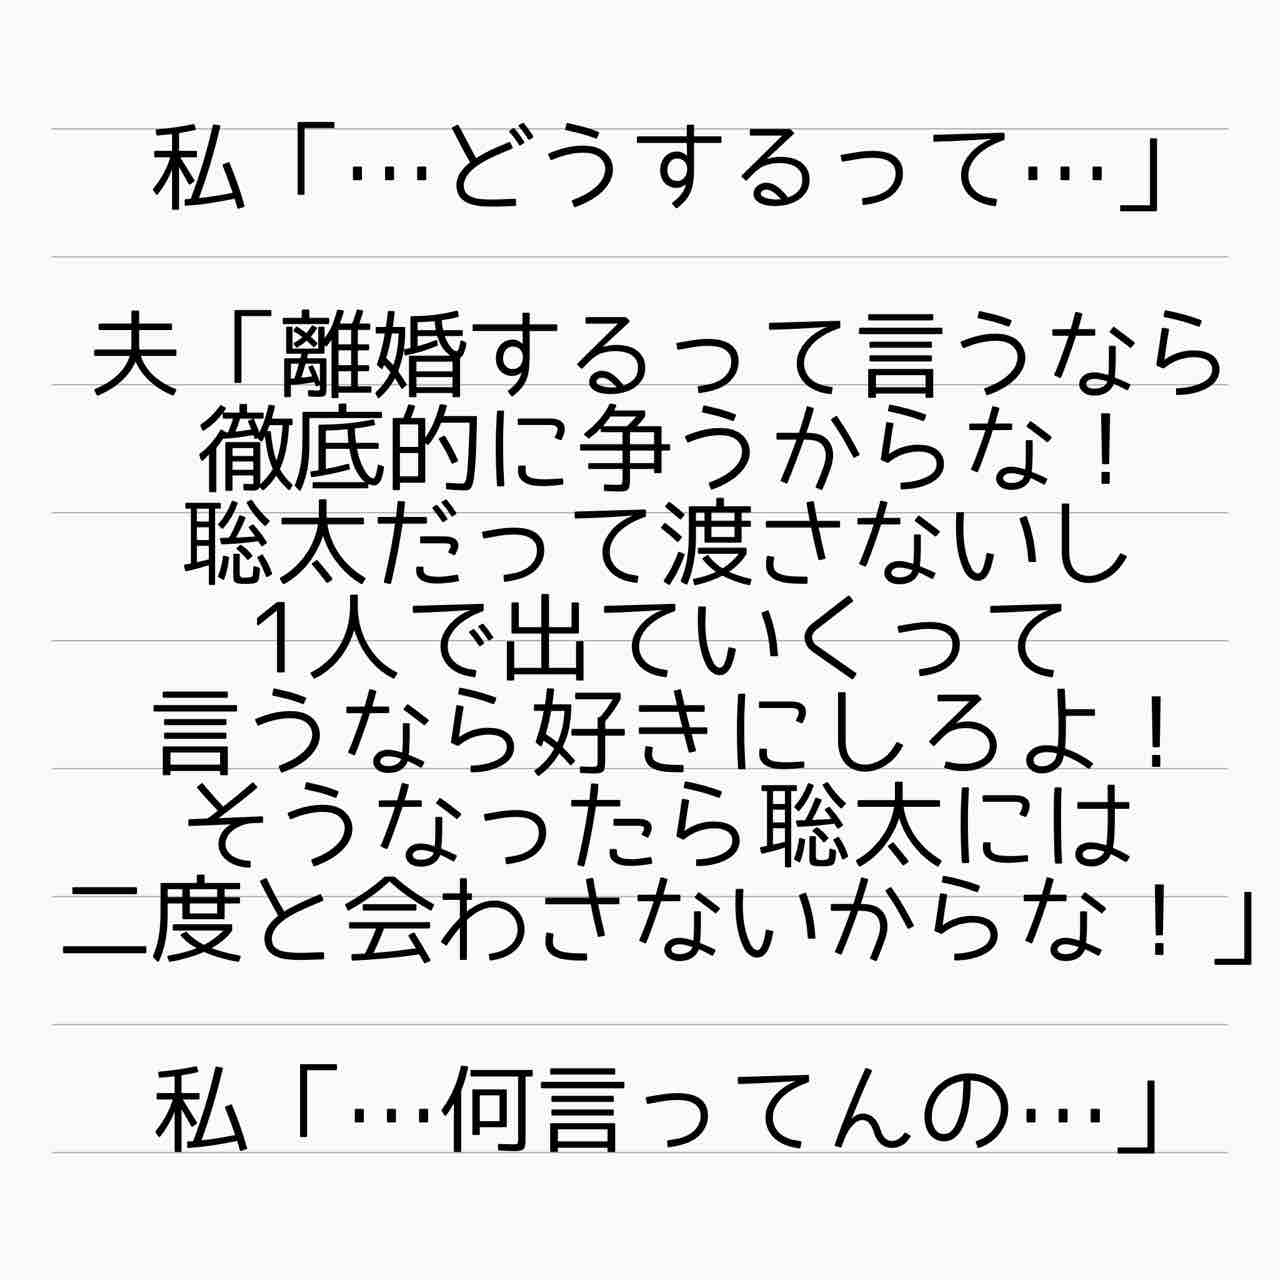 私「…どうするって…」
夫「離婚するって言うなら
徹底的に争うからな！
聡太だって渡さないし
1人で出ていくって
言うなら好きにしろよ！
そうなったら聡太には
二度と会わさないからな！」
私「…何言ってんの…」